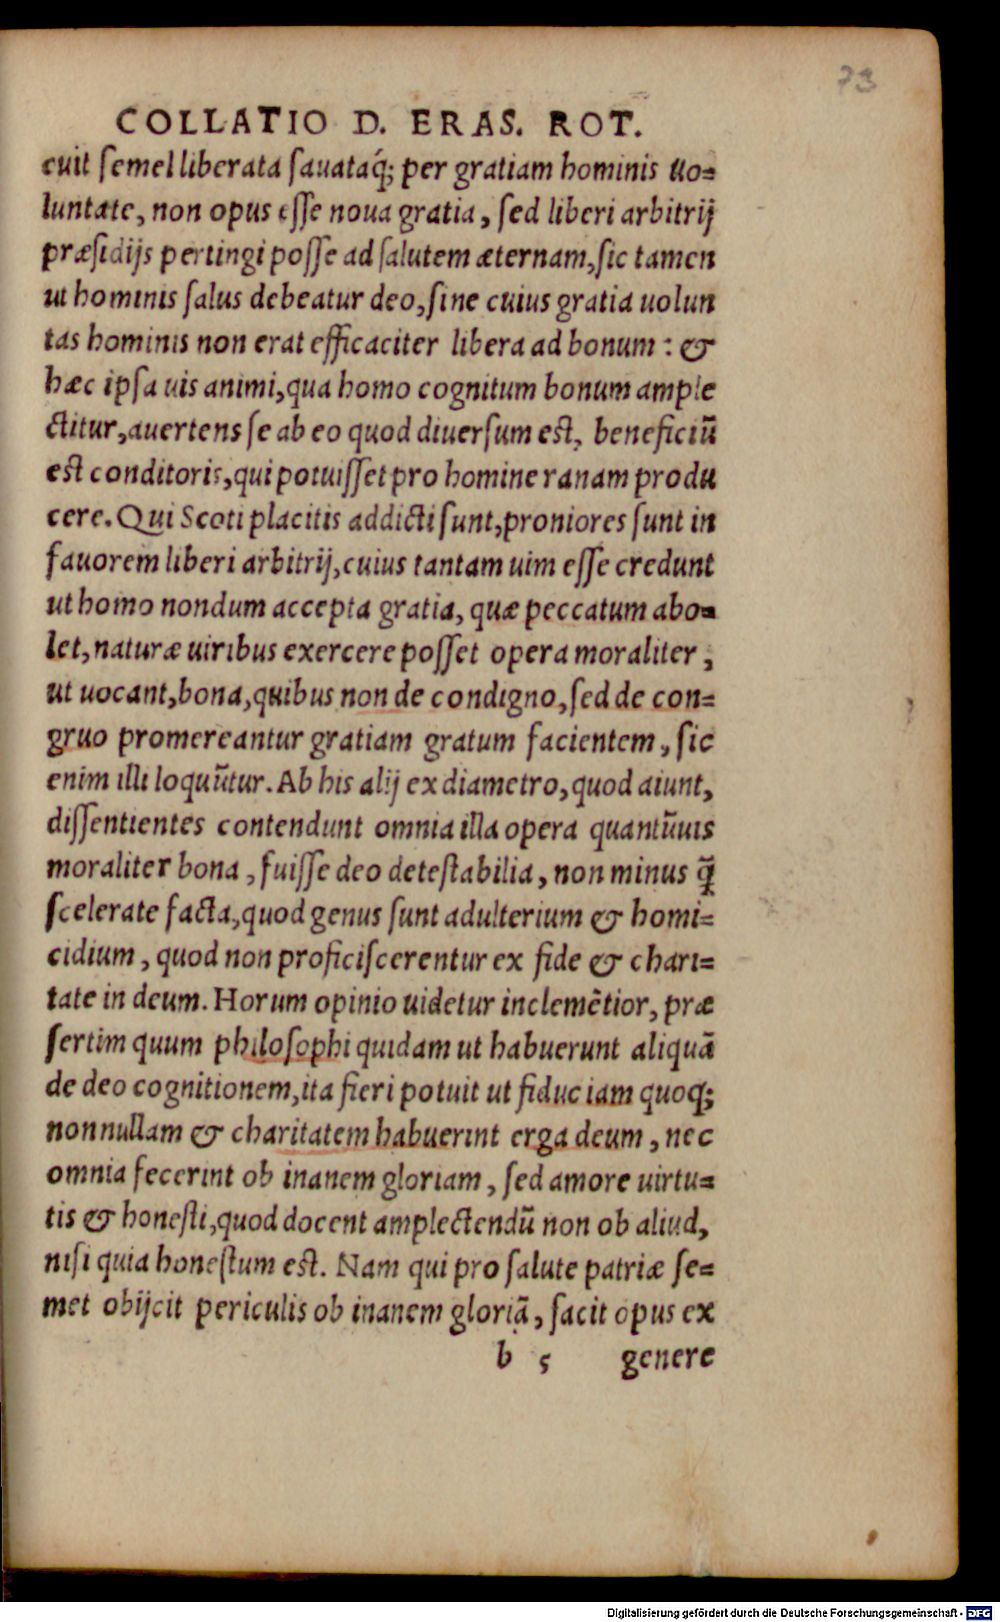 73
COLLATIO D. ERAS. ROT.
cuit ſemel liberata ſauataq́; per gratiam hominis uo=
luntate, non opus eſſe noua gratia, ſed liberi arbitrij
præſidijs pertingi poſſe ad ſalutem æternam, ſic tamen
ut hominis ſalus debeatur deo, ſine cuius gratia uolun
tas hominis non erat efficaciter libera ad bonum : &
hæc ipſa uis animi, qua homo cognitum bonum ample
ctitur, auertens ſe ab eo quod diuerſum est, beneficiũ
est conditoris, qui potuiſſet pro homine ranam produ
cere. Qui Scoti placitis addicti ſunt, proniores ſunt in
fauorem liberi arbitrij, cuius tantam uim eſſe credunt
ut homo nondum accepta gratia, quæ peccatum abo=
let, naturæ uiribus exercere poſſet opera moraliter,
ut uocant, bona, quibus non de condigno, ſed de con=
gruo promereantur gratiam gratum facientem, ſic
enim illi loquũtur. Ab his alij ex diametro, quod aiunt,
diſſentientes contendunt omnia illa opera quantũuis
moraliter bona, fuiſſe deo deteſtabilia, non minus q̃
ſcelerate facta, quod genus ſunt adulterium & homi=
cidium, quod non proficiſcerentur ex fide & chari=
tate in deum. Horum opinio uidetur inclemẽtior, præ
ſertim quum philoſophi quidam ut habuerunt aliquã
de deo cognitionem, ita fieri potuit ut fiduciam quoq;
nonnullam & charitatem habuerint erga deum, nec
omnia fecerint ob inanem gloriam, ſed amore uirtu=
tis & honeſti, quod docent amplectendũ non ob aliud,
niſi quia honeſtum est. Nam qui pro ſalute patriæ ſe=
met obijcit periculis ob inanem gloriã, facit opus ex
b 5 genere
Digitalisierung gefördert durch die Deutsche Forschungsgemeinschaft - DFG